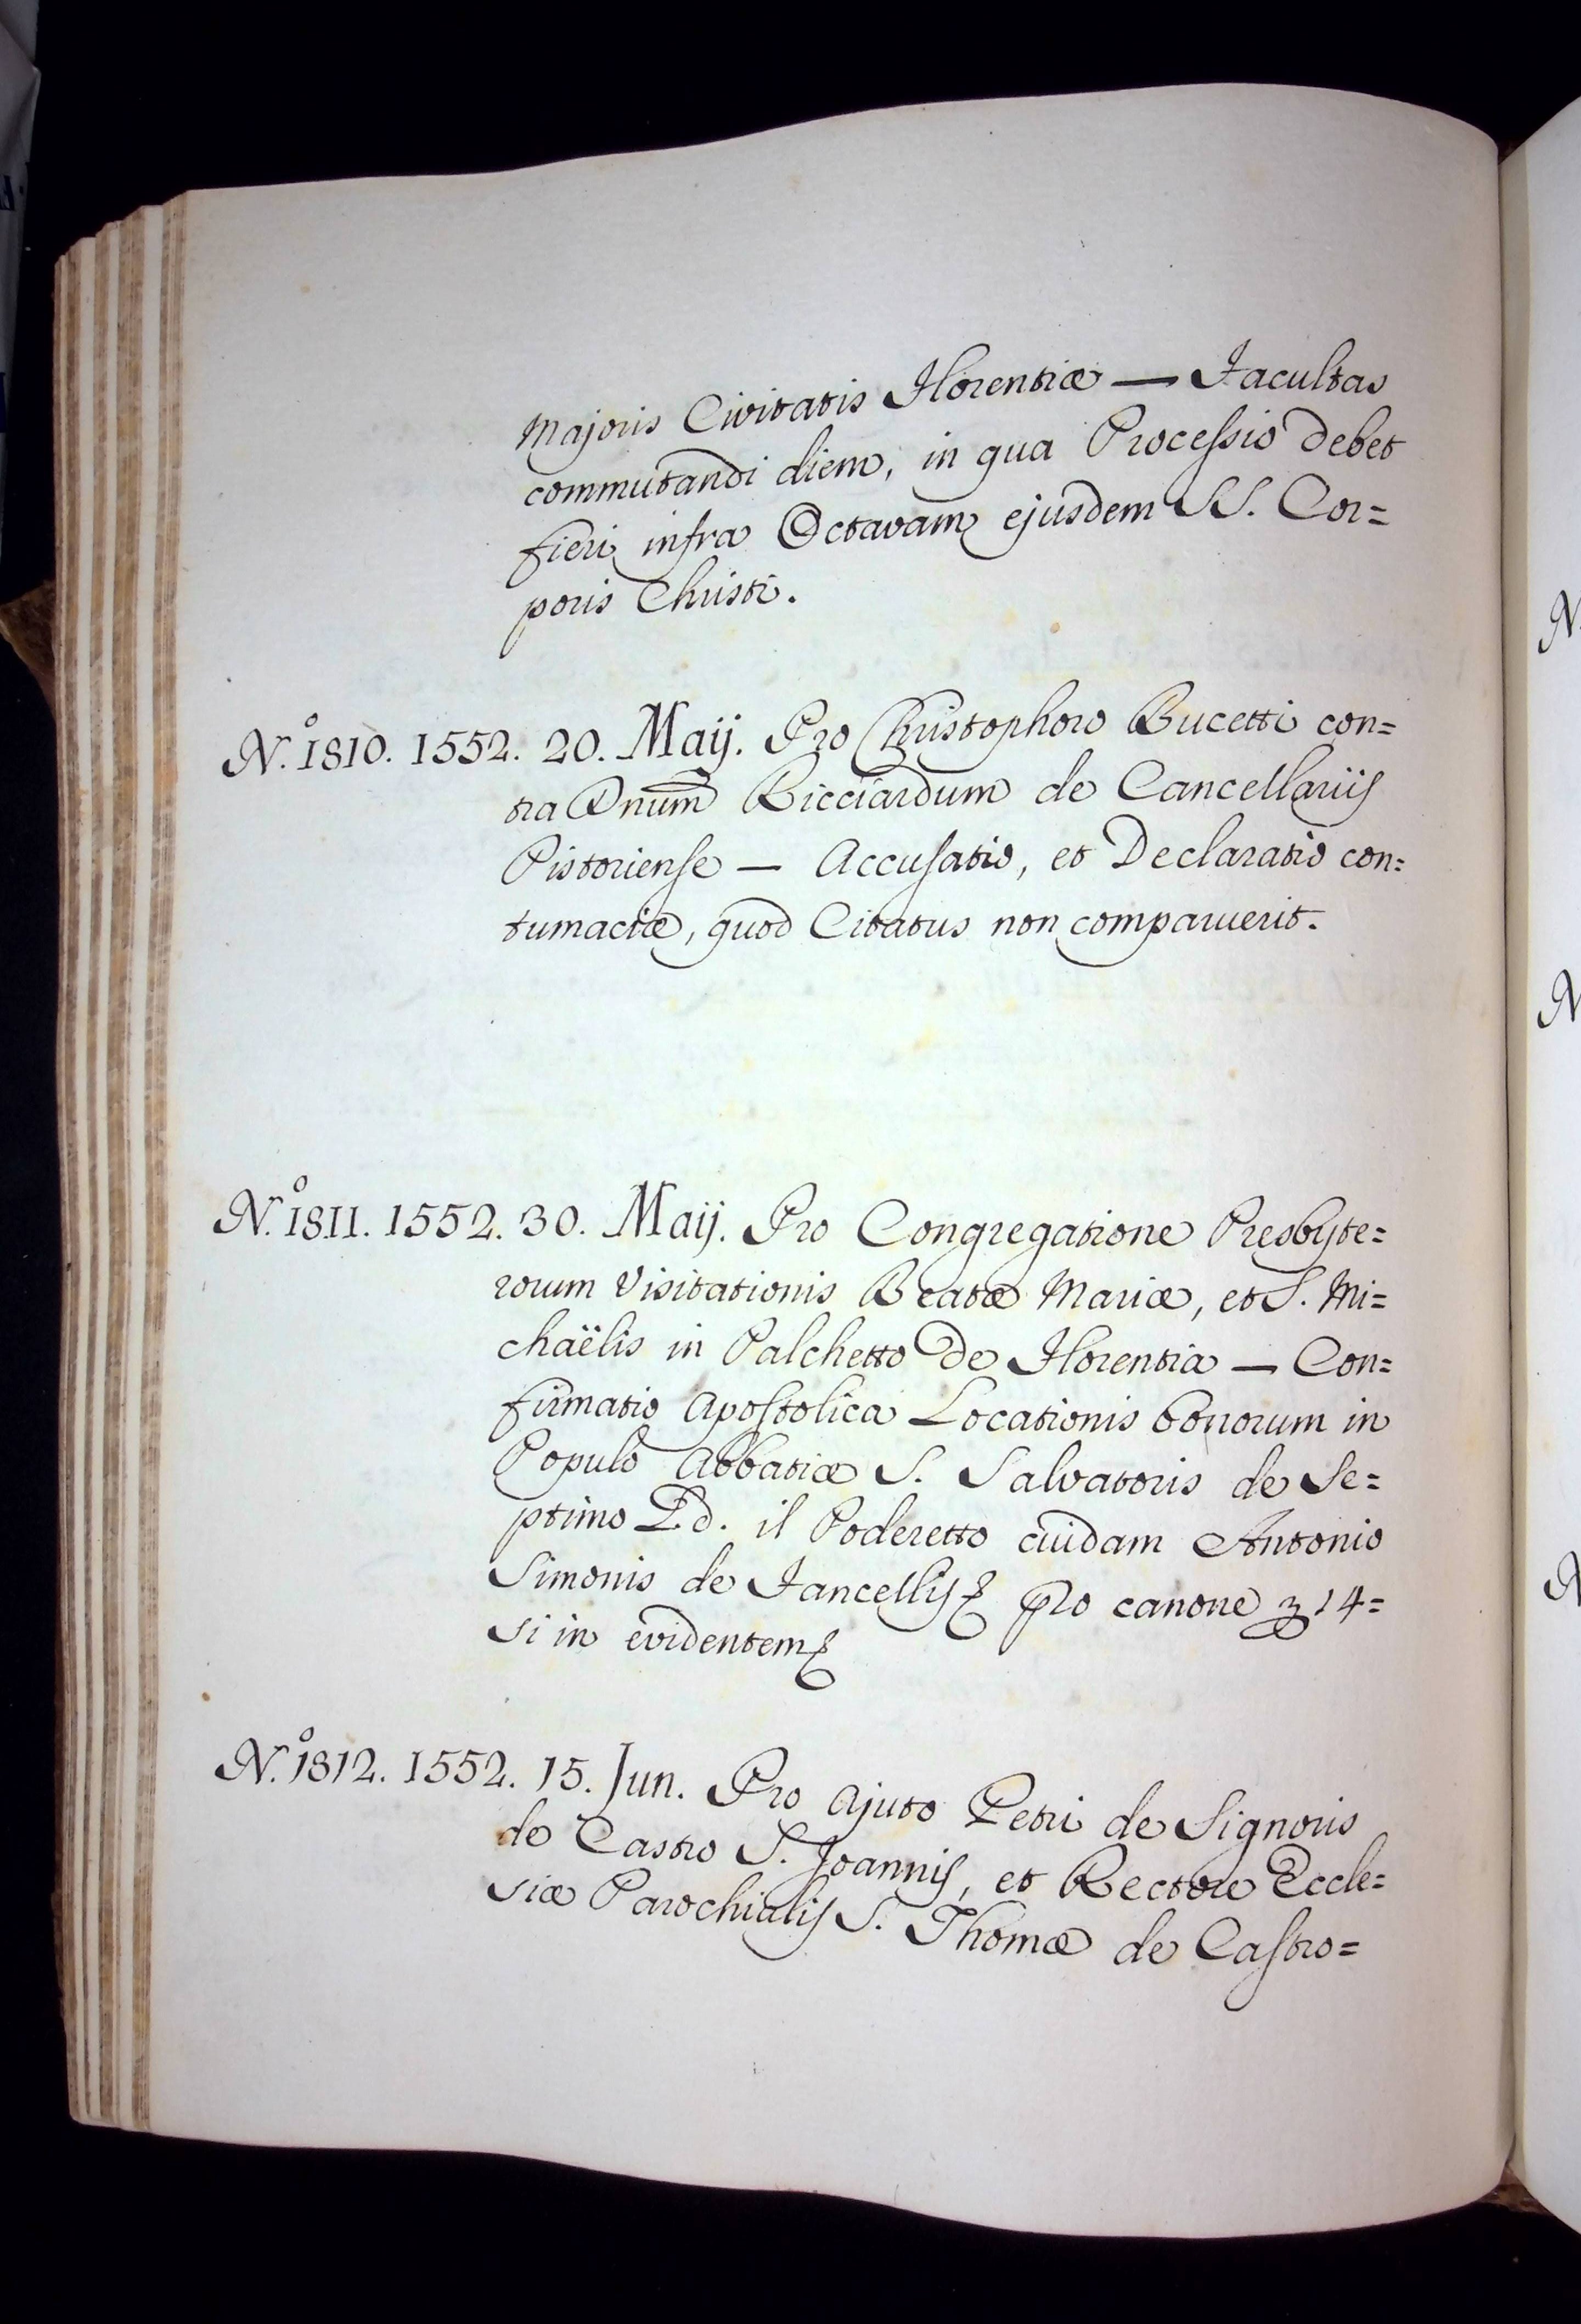 Majoris Civitatis Florentiæ — Facultas
commutandi diem, in qua Processio debet
fieri infra Octavam ejusdem SS. Cor=
poris Christi.
N.º 1810. 1552. 20. Maij. Pro Christophoro Bucetti con=
tra Dnum Ricciardum de Cancellariis
Pistoriense — Accusatio, et Declaratio con=
tumaciæ, quod Citatus non comparuerit.
N.º 1811. 1552. 30. Maij. Pro Congregatione Presbyte=
rorum Visitationis Beatæ Mariæ, et S. Mi=
chaëlis in Palchetto de Florentia — Con=
firmatio Apostolica Locationis bonorum in
Populo Abbatiæ S. Salvatoris de Se=
ptimo L.d. il Poderetto cuidam Antonio
Simonis de Fancellis pro canone 14=
si in evidentem
N.º 1812. 1552. 15. Jun. Pro Ajuto Petri de Signoris
de Castro S. Joannis, et Rectore Eccle=
siæ Parochialis S. Thomæ de Castro=
N
N
N